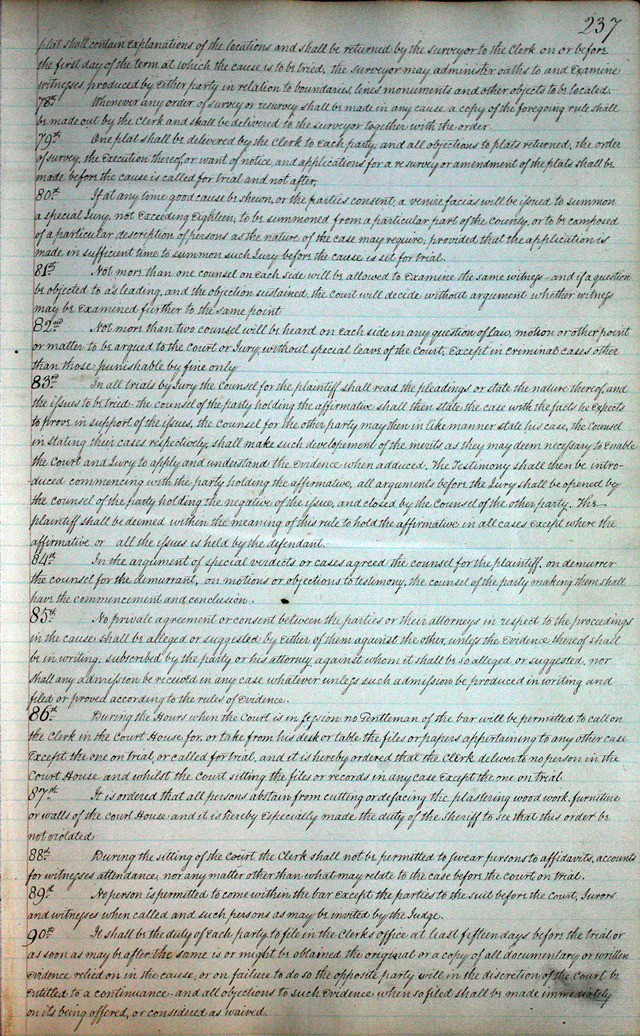 237
plat shall contain Explanations of the locations and shall be returned by the surveyor to the Clerk on or before
the first day of the term at which the cause is to be tried, the surveyor may administer oaths to and Examine
witnesses produced by Either party in relation to boundaries lines monuments and other objects to be located.
78th Whenever any order of survey or resurvey shall be made in any cause a copy of the foregoing rule shall
be made out by the Clerk and shall be delivered to the surveyor together with the order.
79th One plat shall be delivered by the Clerk to Each party, and all objections to plats returned, the order
of survey, the Execution thereof, or want of notice, and applications for a resurvey or amendment of the plats shall be
made before the cause is called for trial and not after,
80th If at any time good cause be shewn, or the parties consent, a venire facias will be issued to summon
a special Jury, not Exceeding Eighteen, to be summoned from a particular part of the County, or to be composed
of a particular description of persons as the nature of the case may require, provided that the application is
made in sufficient time to summon such Jury before the cause is set for trial.
81st Not more than one counsel on Each side will be allowed to Examine the same witness and if a question
be objected to as leading, and the objection sustained, the court will decide without argument whether witness
may be Examined further to the same point
82nd Not more than two counsel will be heard on Each side in any question of law, motion or other point
or matter to be argued to the Court or Jury, without special leave of the Court, Except in criminal cases other
than those punishable by fine only
83rd In all trials by Jury the Counsel for the plaintiff shall read the pleadings or state the nature thereof, and
the issues to be tried the counsel of the party holding the affirmative shall then state the case with the facts he Expects
to prove in support of the issues, the counsel for the other party may then in like manner state his case, the Counsel
in stating their cases respectively, shall make such developement of the merits as they may deem necessary to Enable
the Court and Jury to apply and understand the Evidence when adduced. The Testimony shall then be intro-
duced commencing with the party holding the affirmative, all arguments before the Jury shall be opened by
the counsel of the party holding the negative of the issue, and closed by the Counsel of the other party. The
plaintiff shall be deemed within the meaning of this rule to hold the affirmative in all cases Except where the
affirmative or all the issues is held by the defendant.
84th In the argument of special verdicts or cases agreed the counsel for the plaintiff, on demurrer
the counsel for the demurrant, on motions or objections to testimony, the counsel of the party making them shall
have the commencement and conclusion.
85th No private agreement or consent between the parties or their attorneys in respect to the proceedings
in the cause shall be alleged or suggested by Either of them against the other, unless the Evidence thereof shall
be in writing, subscribed by the party or his attorney against whom it shall be so alleged or suggested, nor
shall any admission be received in any case whatever unless such admission be produced in writing and
filed or proved according to the rules of Evidence.
86th During the Hours when the Court is in session no Gentleman of the bar will be permitted to call on
the Clerk in the Court House for, or take from his desk or table the files or papers appertaining to any other case
Except the one on trial, or called for trial, and it is hereby ordered that the Clerk deliver to no person in the
Court House and whilst the Court sitting the files or records in any case Except the one on trial
87th It is ordered that all persons abstain from cutting or defacing the plastering wood work furniture
or walls of the court House and it is hereby Especially made the duty of the Sheriff to see that this order be
not violated
88th During the sitting of the Court the Clerk shall not be permitted to swear persons to affidavits, accounts
for witnesses attendance, nor any matter other than what may relate to the case before the court on trial.
89th No person is permitted to come within the bar Except the parties to the suit before the Court, Jurors
and witnesses when called and such persons as may be invited by the Judge.
90th It shall be the duty of Each party to file in the Clerks office at least fifteen days before the trial or
as soon as may be after the same is or might be obtained the original or a copy of all documentary or written
Evidence relied on in the cause, or on failure to do so the opposite party will in the discretion of the Court be
Entitled to a continuance and all objections to such Evidence when so filed shall be made immediately
on its being offered, or considered as waived.